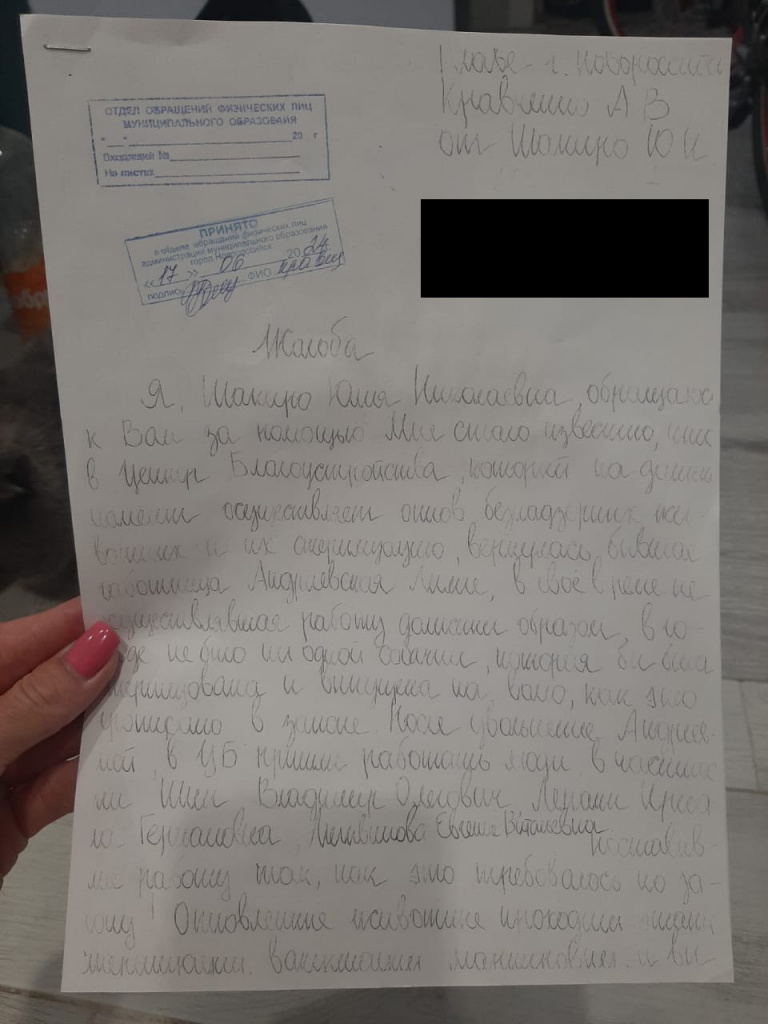 Главе г. Новороссийска
Кравченко А В
от Шакиро Ю Н
ОТДЕЛ ОБРАЩЕНИЙ ФИЗИЧЕСКИХ ЛИЦ
МУНИЦИПАЛЬНОГО ОБРАЗОВАНИЯ
"__"__20 г
Входящий №
На листах
ПРИНЯТО
в отделе обращений физических лиц
администрации муниципального образования
город Новороссийск
«17» 06 2024
подпись ФИО
Жалоба
Я, Шакиро Юлия Николаевна, обращаюс
к Вам за помощью Мне стало известно, что
в Центр Благоустройства, который на данный
момент осуществляет отлов безнадзорных жи-
вотных и их стерилизацию, вернулась бывшая
работница Андриевская Лилия, в своё время не
осуществлявшая работу должным образом, в го-
роде не было ни одной собачки, которая бы была
стерилизована и выпущена на волю, как это
прописано в законе. После увольнения Андрие-
вской, в ЦБ пришли работать люди, в частнос
ти Шен Владимир Олегович, Ирина
Германовна, Евгения Витальевна
поставив-
шие работу так, как это требовалось по за-
кону! Отловленные животные проходили этапы
стерилизации, вакцинации и вы